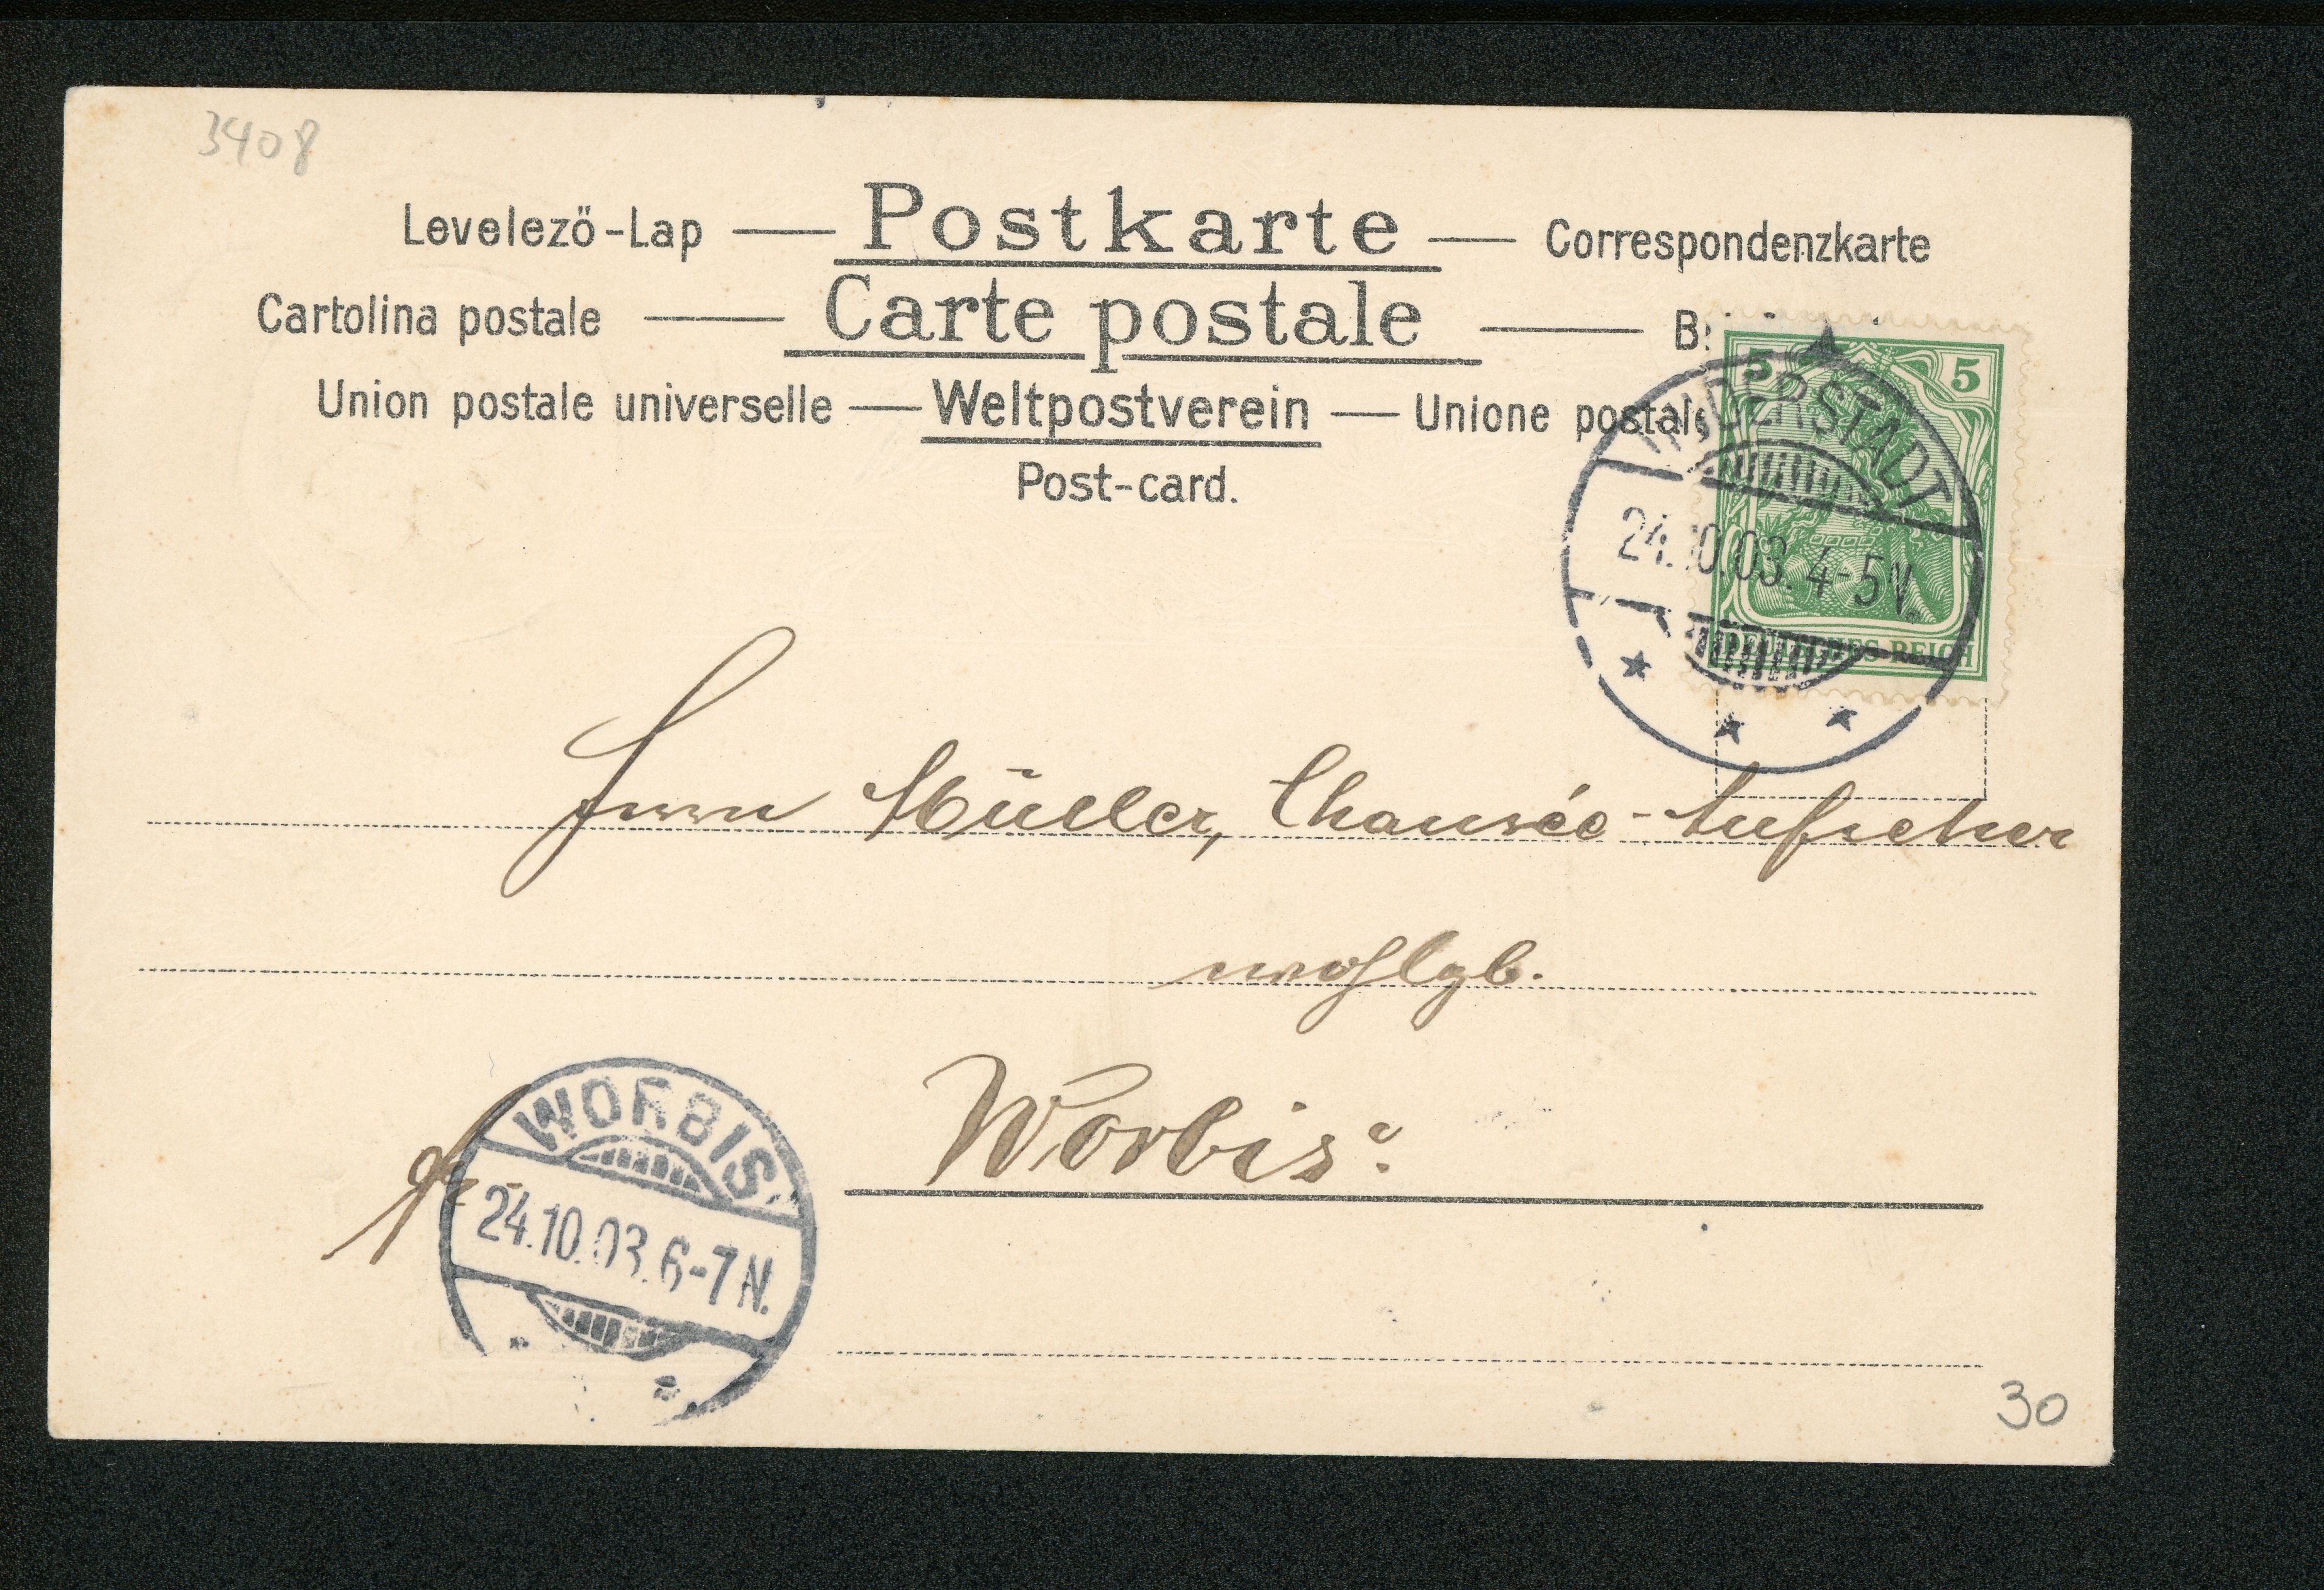 3408
Levelező-Lap — Postkarte — Correspondenzkarte
Cartolina postale — Carte postale —
Union postale universelle — Weltpostverein — Unione postale
Post-card.
5 5
DUDERSTADT
24.10.03. 4-5 N.
DEUTSCHES REICH
Herrn Müller, Chausée-Aufseher
wohlgb.
Worbis
WORBIS
24.10.03. 6-7 N.
30